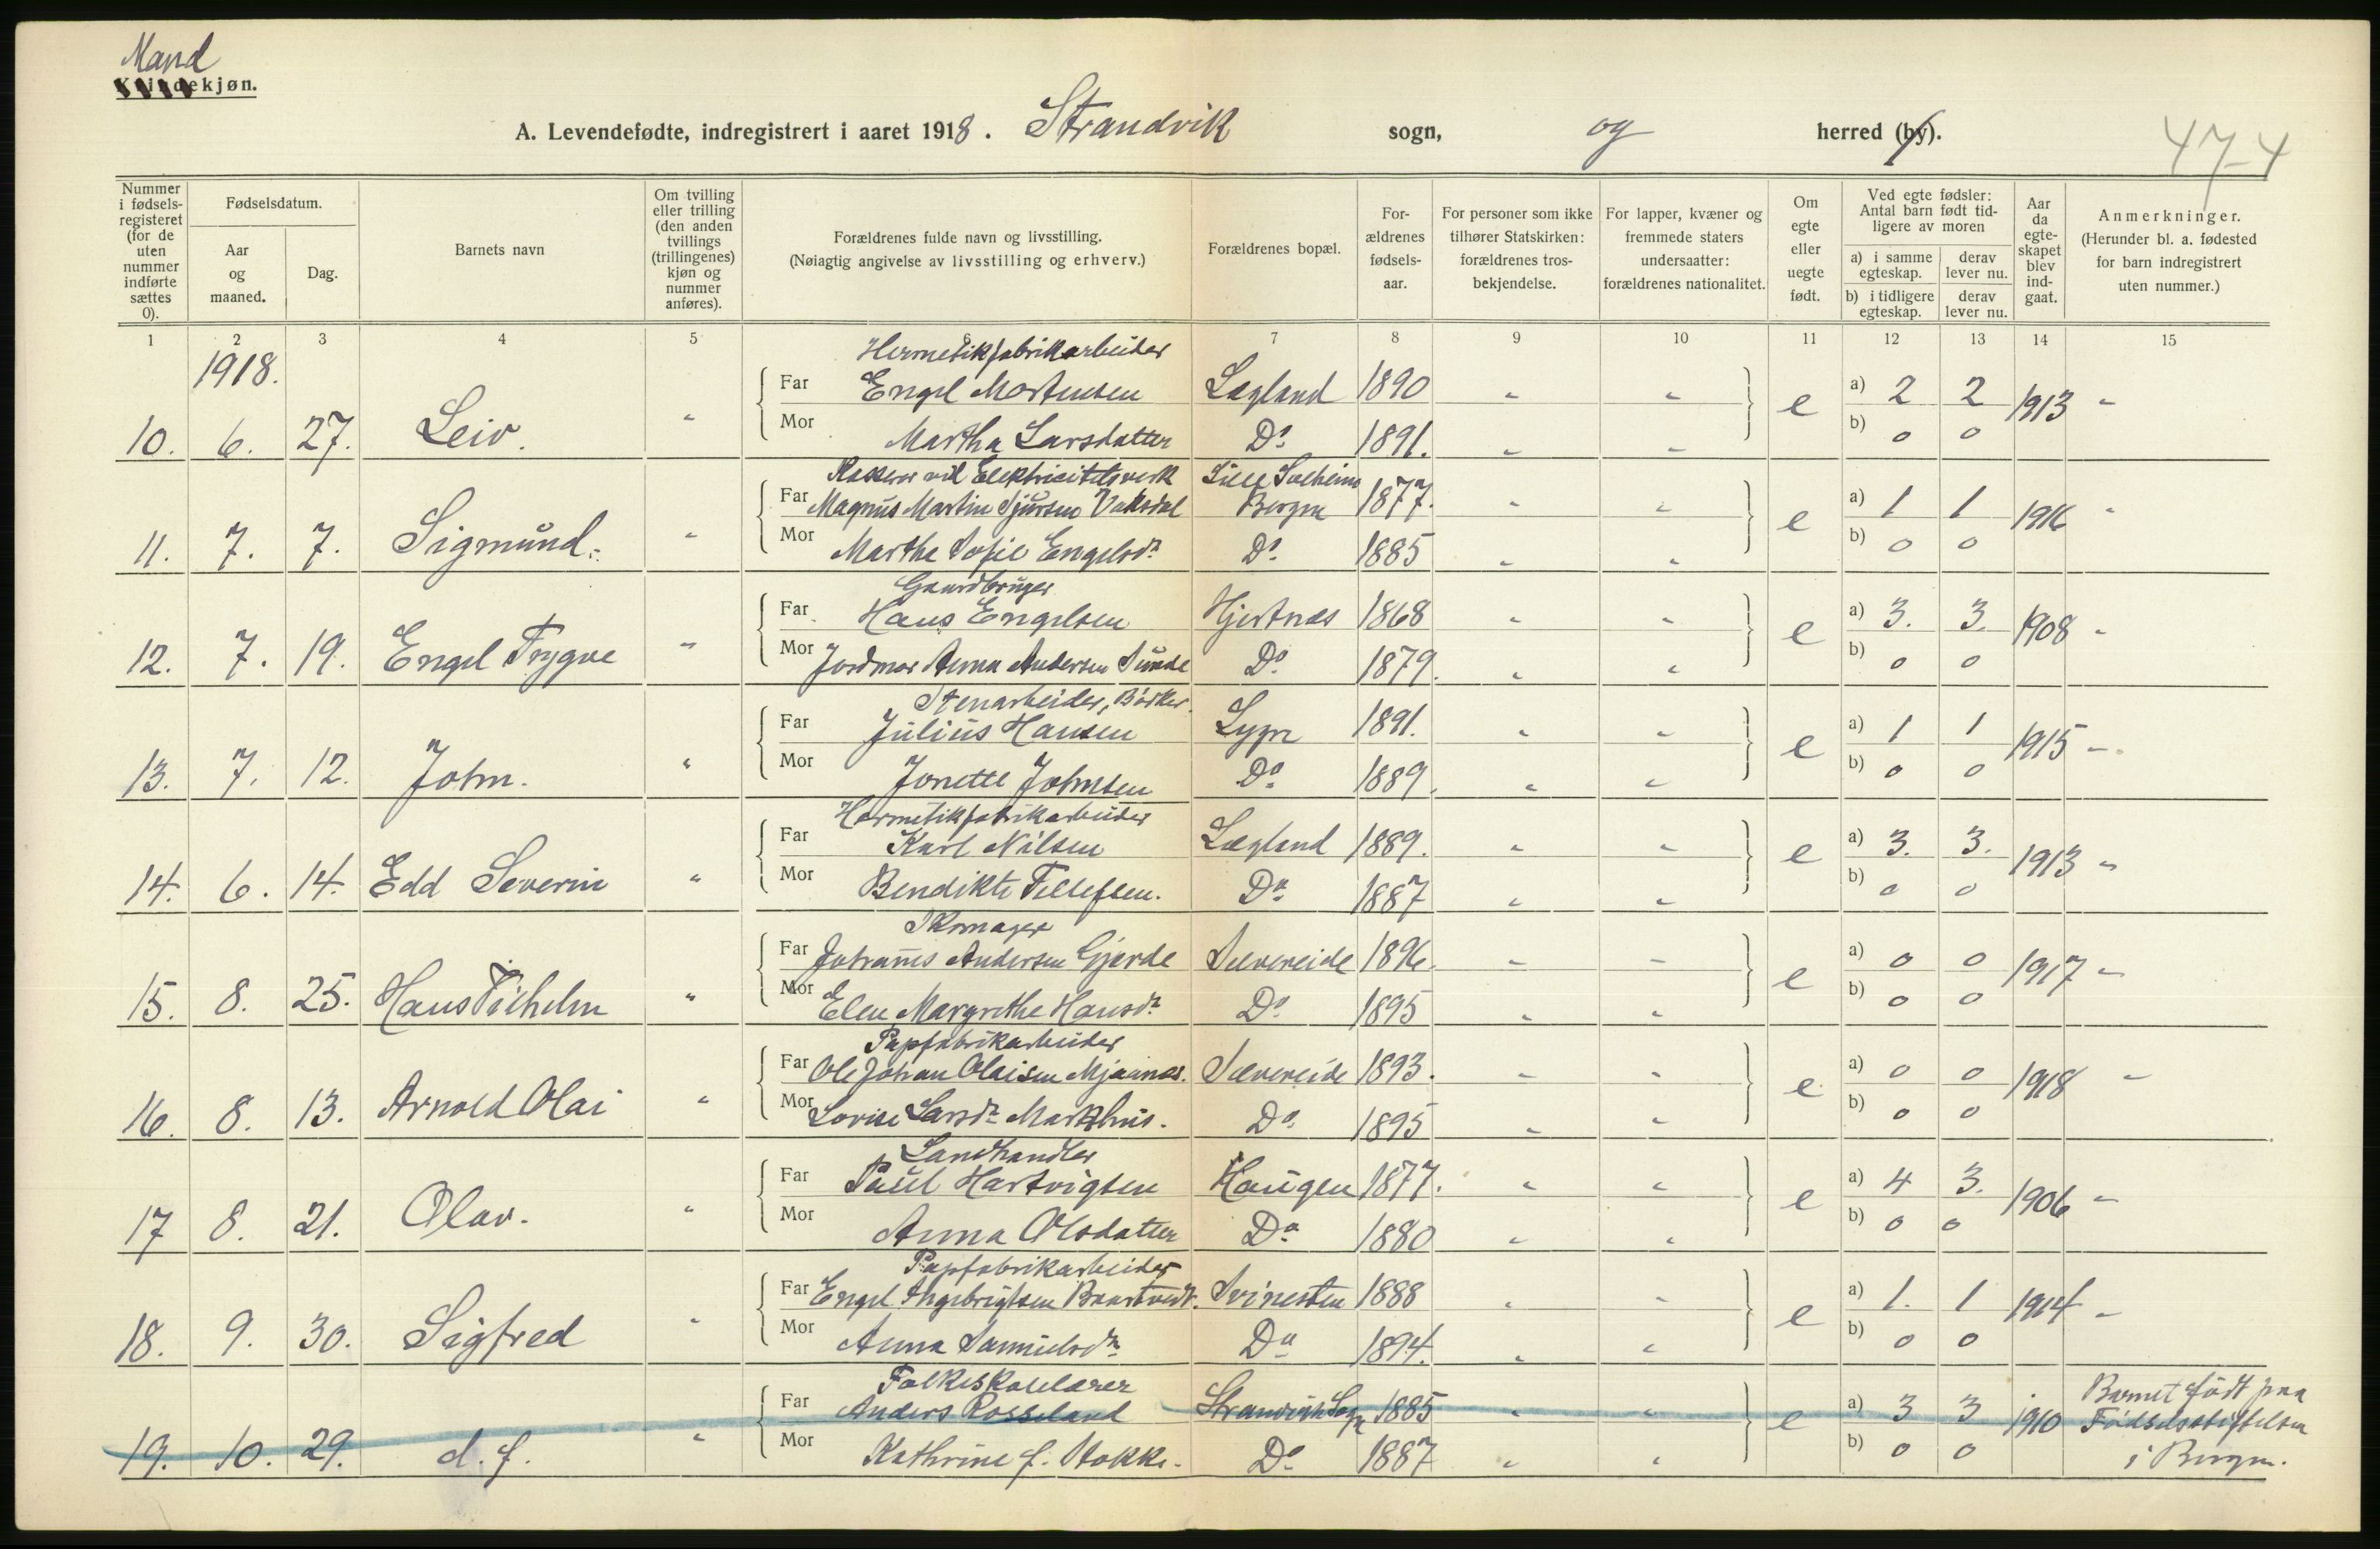 Mand
Kvindekjøn.
A. Levendefødte, indregistrert i aaret 1918. Strandvik sogn, og herred (by). 47-4
Nummer i fødsels-registeret (for de uten nummer indførte sættes 0). Fødselsdatum. Aar og maaned. Dag. Barnets navn Om tvilling eller trilling (den anden tvillings (trillingenes) kjøn og nummer anføres). Forældrenes fulde navn og livsstilling. (Nøiagtig angivelse av livsstilling og erhverv.) Forældrenes bopæl. For-ældrenes fødsels-aar. For personer som ikke tilhører Statskirken: forældrenes tros-bekjendelse. For lapper, kvæner og fremmede staters undersaatter: forældrenes nationalitet. Om egte eller uegte født. Ved egte fødsler: Antal barn født tid-ligere av moren a) i samme egteskap. derav lever nu. b) i tidligere egteskap. derav lever nu. Aar da egte-skapet blev ind-gaat. Anmerkninger. (Herunder bl. a. fødested for barn indregistrert uten nummer.)
1 2 3 4 5 6 7 8 9 10 11 12 13 14 15
1918. Hermetikfabrikarbeider
Far Engel Mortensen Lægland 1890 " " a) 2 2
10. 6. 27. Leiv. " e 1913 "
Mor Martha Larsdatter Do 1891. " " b) 0 0
ved Elektricitetsverk Lille Solheim
Far Magnus Martin Sjursen Vaksdal Bergen 1877. " " a) 1 1
11. 7. 7. Sigmund. " e 1916 "
Mor Martha Sofie Engelsdr Do 1885 " " b) 0 0
Gaardbruger
Far Hans Engelsen Hjertnæs 1868 " " a) 3. 3.
12. 7. 19. Engel Trygve " e 1908 "
Mor Jordmor Anna Andersen Sunde Do 1879. " " b) 0 0
Stenarbeider, Bødker.
Far Julius Hansen Lygre 1891. " " a) 1 1
13. 7. 12. John. " e 1915 "
Mor Jonette Johnsen Do 1889. " " b) 0 0
Hermetikfabrikarbeider
Far Karl Nilsen Lægland 1889. " " a) 3. 3.
14. 6. 14. Edd Severin " e 1913 "
Mor Bendikte Tellefsen. Do 1887 " " b) 0 0
Skomager
Far Johannes Andersen Gjerde Sævereide 1896. " " a) 0 0
15. 8. 25. Hans Vilhelm " e 1917 "
Mor Elen Margrethe Hansdr Do 1895 " " b) 0 0
Papfabrikarbeider
Far Ole Johan Olaisen Mjaanæs. Sævereide 1893. " " a) 0 0
16. 8. 13. Arnold Olai " e 1918 "
Mor Lovise Larsdr Markhus. Do 1895 " " b) 0 0
Landhandler
Far Paul Hartvigsen Haugen 1877. " " a) 4 3.
17 8. 21. Olav. " e 1906 "
Mor Anna Olsdatter Do 1880 " " b) 0 0
Papfabrikarbeider
Far Engel Ingebrigtsen Baartvedt. Svinesten 1888 " " a) 1. 1
18. 9. 30. Sigfred " e 1914 "
Mor Anna Samuelsdr Do 1894. " " b) 0 0
Folkeskolelærer Barnet født paa
Far Anders Rosseland Strandvik Sogn 1885 " " a) 3 3
19. 10. 29. d. f. " e 1910 Fødselsstiftelsen
Mor Kathrine f. Stokke. Do 1887 " " b) 0 0 i Bergen.